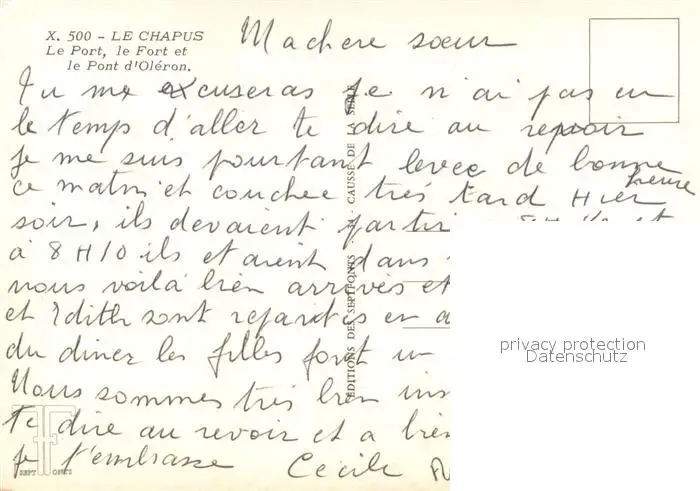 X. 500 - LE CHAPUS
Le Port, le Fort et
le Pont d'Oléron.
Ma chere soeur
Tu me excuseras Je n'ai pas eu
le temps d'aller te dire au revoir
Je me suis pourtant levee de bonne
heure
ce matin et couchee très tard Hier
soir, ils devaient partir
à 8 H/O ils etaient dans
nous voilà bien arrivés et
et Edith sont repartis en
du diner les filles font un
Nous sommes très bien
Te dire au revoir et a bien
je t'embrasse Cecile
ÉDITIONS DES SEPT FONTS - CAUSSE DE
SEPT FONTS
privacy protection
Datenschutz